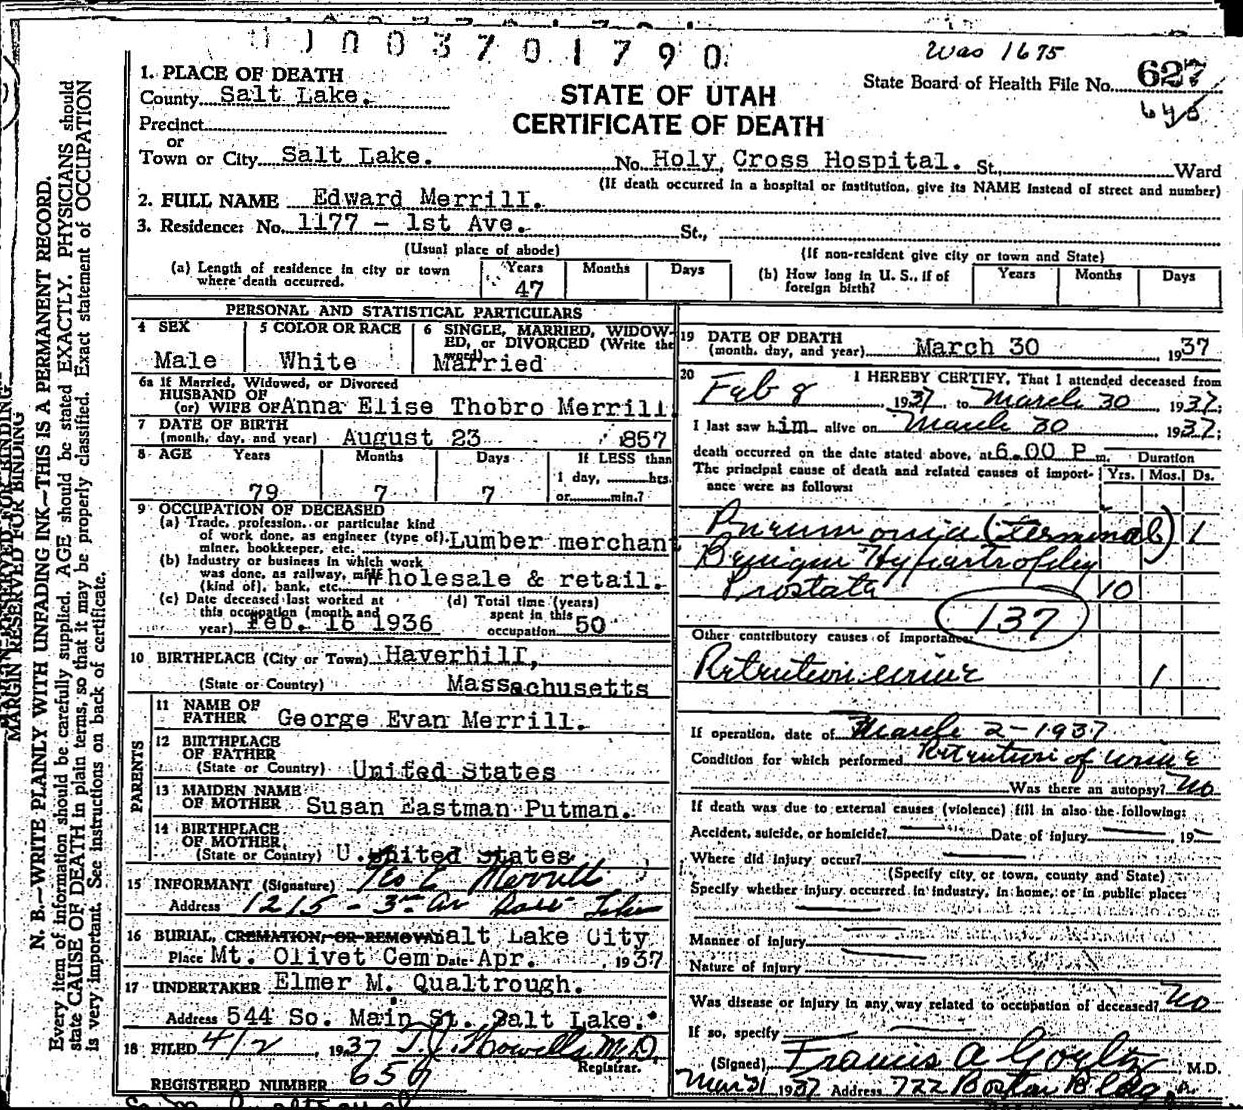 0 0 0 3 7 0 1 7 9 0
Was 1675
State Board of Health File No. 627
STATE OF UTAH
CERTIFICATE OF DEATH
1. PLACE OF DEATH
County Salt Lake.
Precinct
or
Town or City Salt Lake. No. Holy Cross Hospital. St., Ward
(If death occurred in a hospital or institution, give its NAME instead of street and number)
2. FULL NAME Edward Merrill.
3. Residence: No. 1177 - 1st Ave. St.,
(Usual place of abode) (If non-resident give city or town and State)
(a) Length of residence in city or town where death occurred. Years 47 Months Days
(b) How long in U. S., if of foreign birth? Years Months Days
PERSONAL AND STATISTICAL PARTICULARS
4 SEX Male
5 COLOR OR RACE White
6 SINGLE, MARRIED, WIDOWED, or DIVORCED (Write the word) Married
6a If Married, Widowed, or Divorced
HUSBAND OF
(or) WIFE OF Anna Elise Thobro Merrill
7 DATE OF BIRTH
(month, day, and year) August 23 1857
8 AGE Years 79 Months 7 Days 7 If LESS than
1 day, hrs.
or min.?
9 OCCUPATION OF DECEASED
(a) Trade, profession, or particular kind
of work done, as engineer (type of),
miner, bookkeeper, etc. Lumber merchant
(b) Industry or business in which work
was done, as railway, mfg
(kind of), bank, etc. Wholesale & retail.
(c) Date deceased last worked at
this occupation (month and
year) Feb. 16 1936
(d) Total time (years)
spent in this
occupation 50
10 BIRTHPLACE (City or Town) Haverhill,
(State or Country) Massachusetts
PARENTS
11 NAME OF
FATHER George Evan Merrill.
12 BIRTHPLACE
OF FATHER
(State or Country) United States
13 MAIDEN NAME
OF MOTHER Susan Eastman Putman.
14 BIRTHPLACE
OF MOTHER
(State or Country) U. United States
15 INFORMANT (Signature) Geo E Merrill
Address 1215 - 3rd Av Salt Lake
16 BURIAL, CREMATION, OR REMOVAL Salt Lake City
Place Mt. Olivet Cem Date Apr. 1937
17 UNDERTAKER Elmer M. Qualtrough.
Address 544 So. Main St. Salt Lake.
18 FILED 4/2, 1937 T. J. Howells, M.D.
Registrar.
REGISTERED NUMBER 656
19 DATE OF DEATH
(month, day, and year) March 30, 1937
20 I HEREBY CERTIFY, That I attended deceased from
Feb 8 1937 to March 30 1937;
I last saw him alive on March 30 1937;
death occurred on the date stated above, at 6.00 P m.
The principal cause of death and related causes of importance were as follows:
Duration
Yrs. Mos. Ds.
Pneumonia (terminal) 1
Benign Hypertrophy
Prostate 10
137
Other contributory causes of importance:
Retention urine 1
If operation, date of March 2-1937
Condition for which performed Retention of urine
Was there an autopsy? No
If death was due to external causes (violence) fill in also the following:
Accident, suicide, or homicide? Date of injury 19
Where did injury occur?
(Specify city, or town, county and State)
Specify whether injury occurred in industry, in home, or in public place:
Manner of injury
Nature of injury
Was disease or injury in any way related to occupation of deceased? No
If so, specify
(Signed) Francis A M.D.
Mar 31 1937 Address 722 Boston Bldg
MARGIN RESERVED FOR BINDING
N. B.—WRITE PLAINLY WITH UNFADING INK—THIS IS A PERMANENT RECORD.
Every item of information should be carefully supplied. AGE should be stated EXACTLY. PHYSICIANS should
state CAUSE OF DEATH in plain terms, so that it may be properly classified. Exact statement of OCCUPATION
is very important. See instructions on back of certificate.